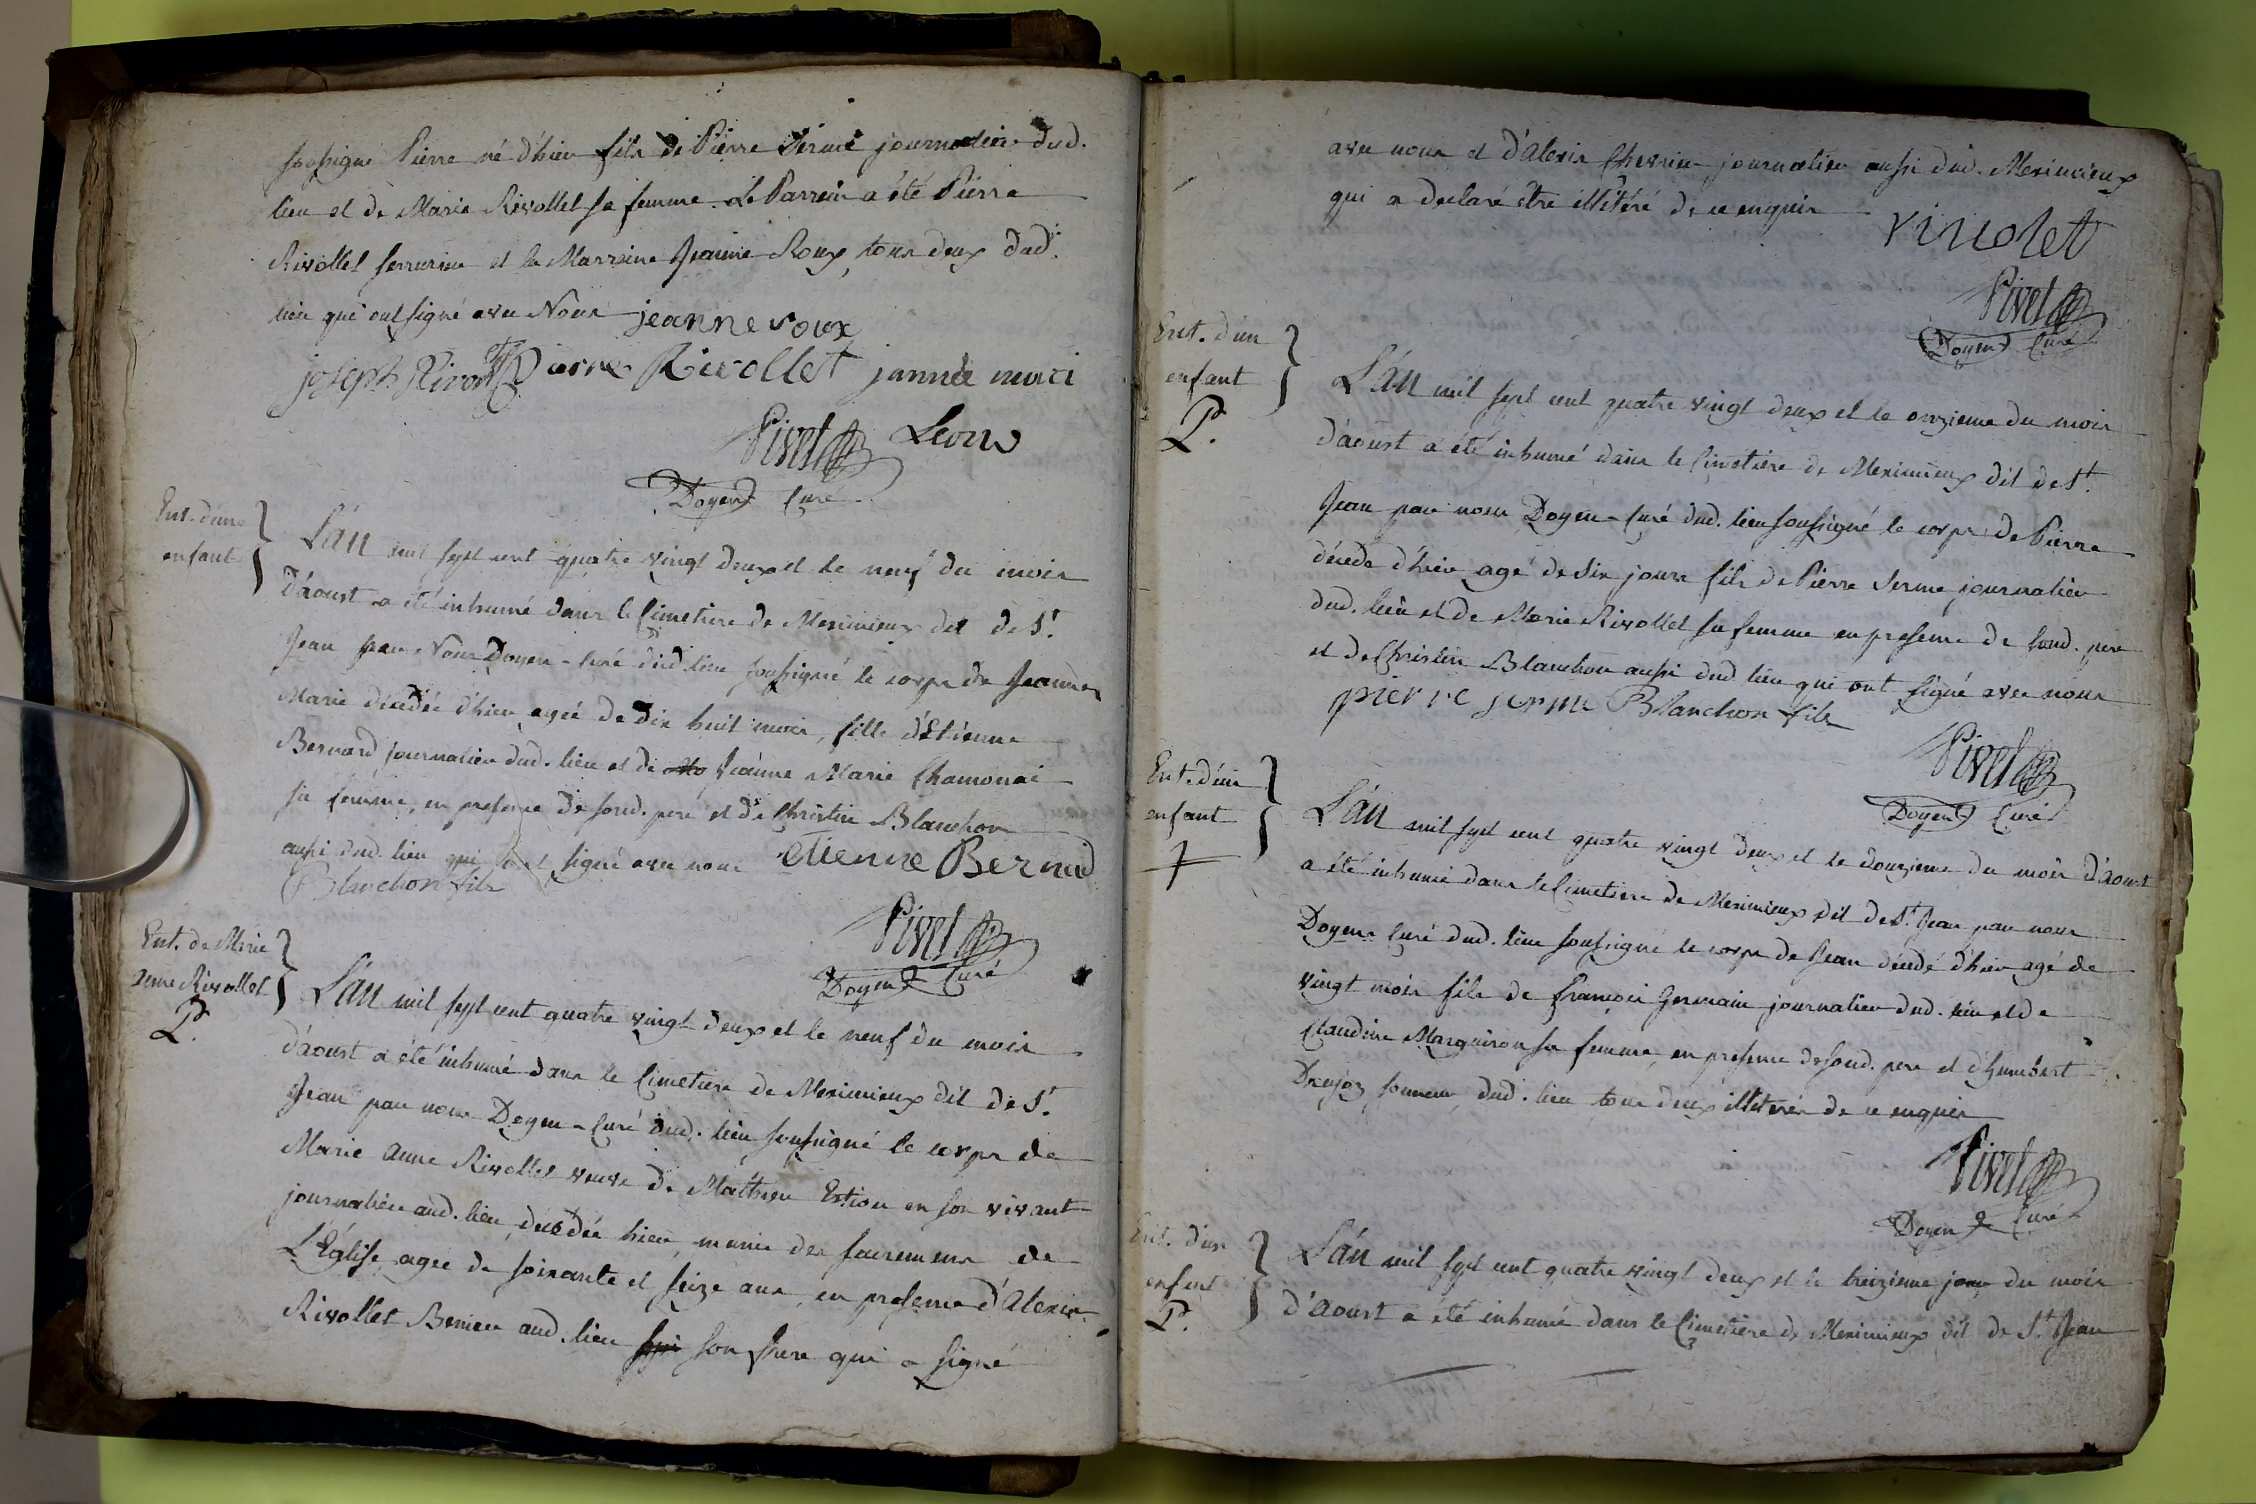 soussigné Pierre né d'hier fils de Pierre Serme journalier dud.
lieu et de Marie Rivollet sa femme. Le Parrein a été Pierre
Rivollet serrurier et la Marreine Jeanne Roux, tous deux dud.
lieu qui ont signé avec Nous jeanne roux
joseph Pierre Rivollet
Pivet Leons
Doyen Curé
Ent. d'une
enfant
L'an mil sept cent quatre vingt deux et le neuf du mois
d'aoust a été inhumé dans le Cimetiere de Meximieux dit de St.
Jean par Nous Doyen-Curé dud. lieu soussigné le corps de Jeanne
Marie décédée d'hier agée de dix huit mois, fille d'Etienne
Bernard journalier dud. lieu et de Jeanne Marie Chamonai
sa femme, en presence de soud. pere et de Christin Blanchon
aussi dud. lieu qui ont signé avec nous etienne Bernard
Blanchon fils
Pivet
Doyen Curé
Ent. de Marie
anne Rivollet
P.
L'an mil sept cent quatre vingt deux et le neuf du mois
d'aoust a été inhumé dans le Cimetiere de Meximieux dit de St.
Jean par nous Doyen-Curé dud. lieu soussigné le corps de
Marie anne Rivollet veuve de Mathieu Estion en son vivant
journalier aud. lieu, décédée hier, munie des sacremens de
L'Église, agée de soixante et seize ans, en presence d'Alexis
Rivollet aud. lieu son frere qui a signé
avec nous et d'Alexis Chevrier journalier aussi dud. Meximieux
qui a declaré être illitéré de ce enquis
rivolet
Pivet
Doyen Curé
Ent. d'un
enfant
P.
L'an mil sept cent quatre vingt deux et le onzieme du mois
d'aoust a été inhumé dans le Cimetiere de Meximieux dit de St.
Jean par nous Doyen-Curé dud. lieu soussigné le corps de Pierre
décédé d'hier agé de six jours fils de Pierre Serme journalier
dud. lieu et de Marie Rivollet sa femme en presence de soud. pere
et de Christin Blanchon aussi dud. lieu qui ont signé avec nous
pierre serme Blanchon fils
Pivet
Doyen Curé
Ent. d'un
enfant
L'an mil sept cent quatre vingt deux et le douzieme du mois d'aoust
a été inhumé dans le Cimetiere de Meximieux dit de St. Jean par nous
Doyen Curé dud. lieu soussigné le corps de Jean décédé d'hier agé de
vingt mois fils de françois Germain journalier dud. lieu et de
Claudine Marguiron sa femme, en presence de soud. pere et d'humbert
Drujoz sonneur, dud. lieu tous deux illiterés de ce enquis
Pivet
Doyen Curé
Ent. d'un
enfant
P.
L'an mil sept cent quatre vingt deux et le treizieme jour du mois
d'Aoust a été inhumé dans le Cimetiere de Meximieux dit de St. Jean